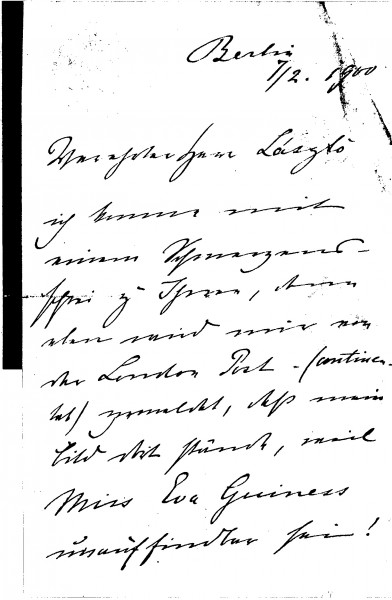 Berlin
7/2. 1900
Verehrter Herr László
ich komme mit
einem Schmerzens-
schrei zu Ihnen, denn
eben wird mir von
der London Post - (continen-
tal) gemeldet, daß mein
Bild dort stände, weil
Miss Eva Guiness
unauffindbar sei!